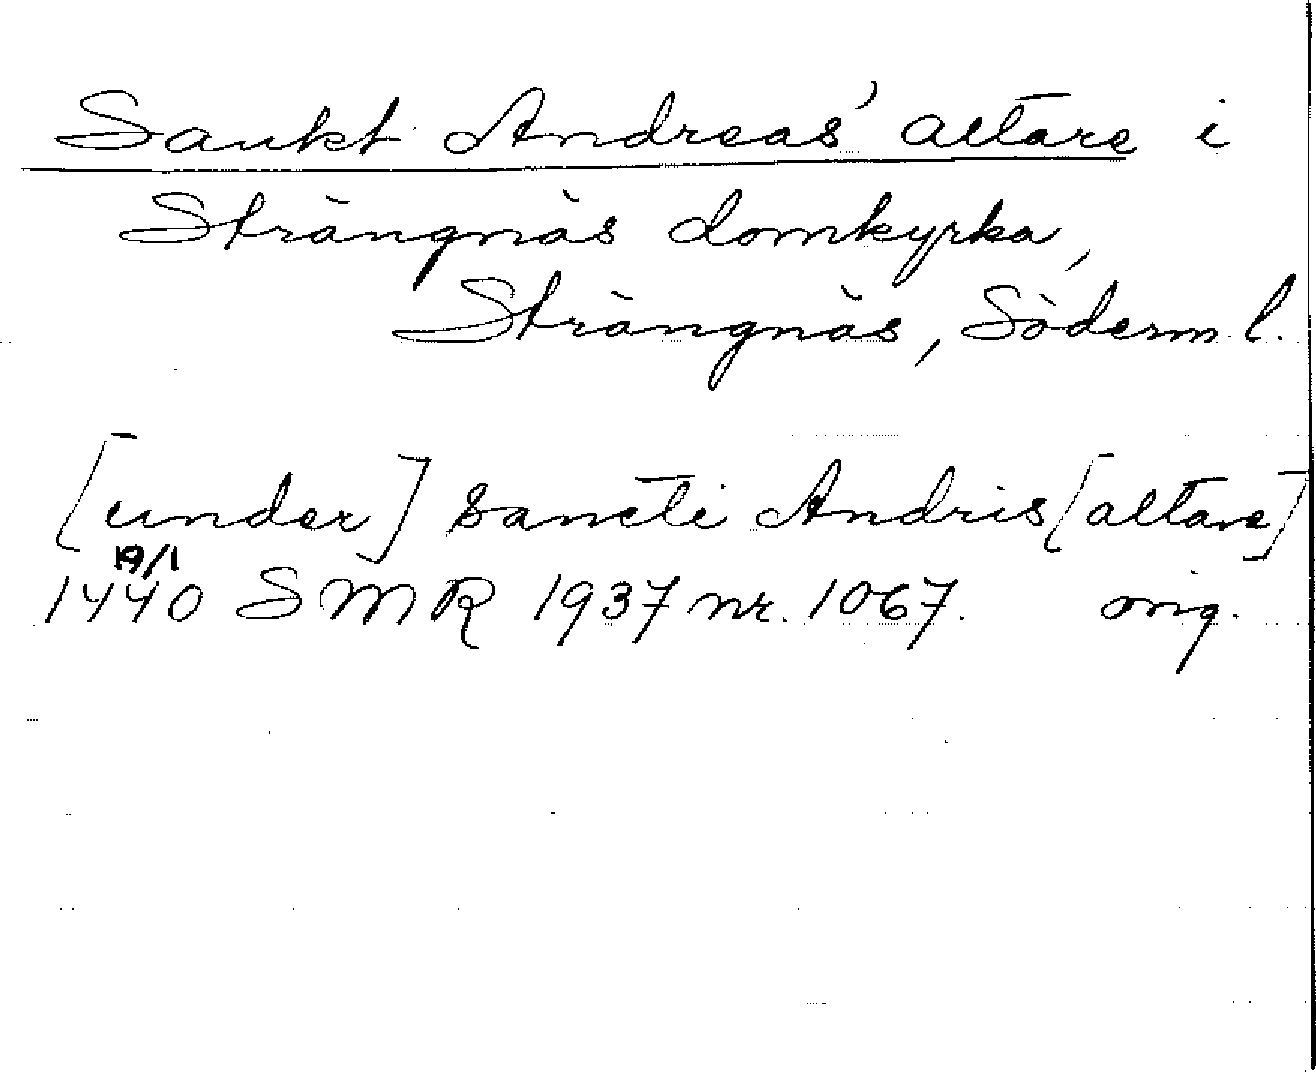 Sankt Andreas' altare i
Strängnäs domkyrka,
Strängnäs, Söderml.
[under] sancti Andris [altare]
19/1
1440 SMR 1937 nr. 1067. orig.